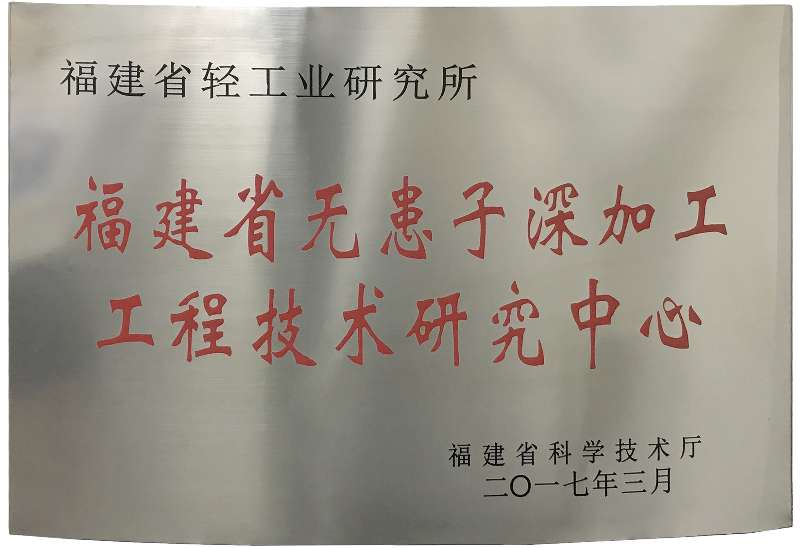 福建省轻工业研究所
福建省无患子深加工
工程技术研究中心
福建省科学技术厅
二〇一七年三月